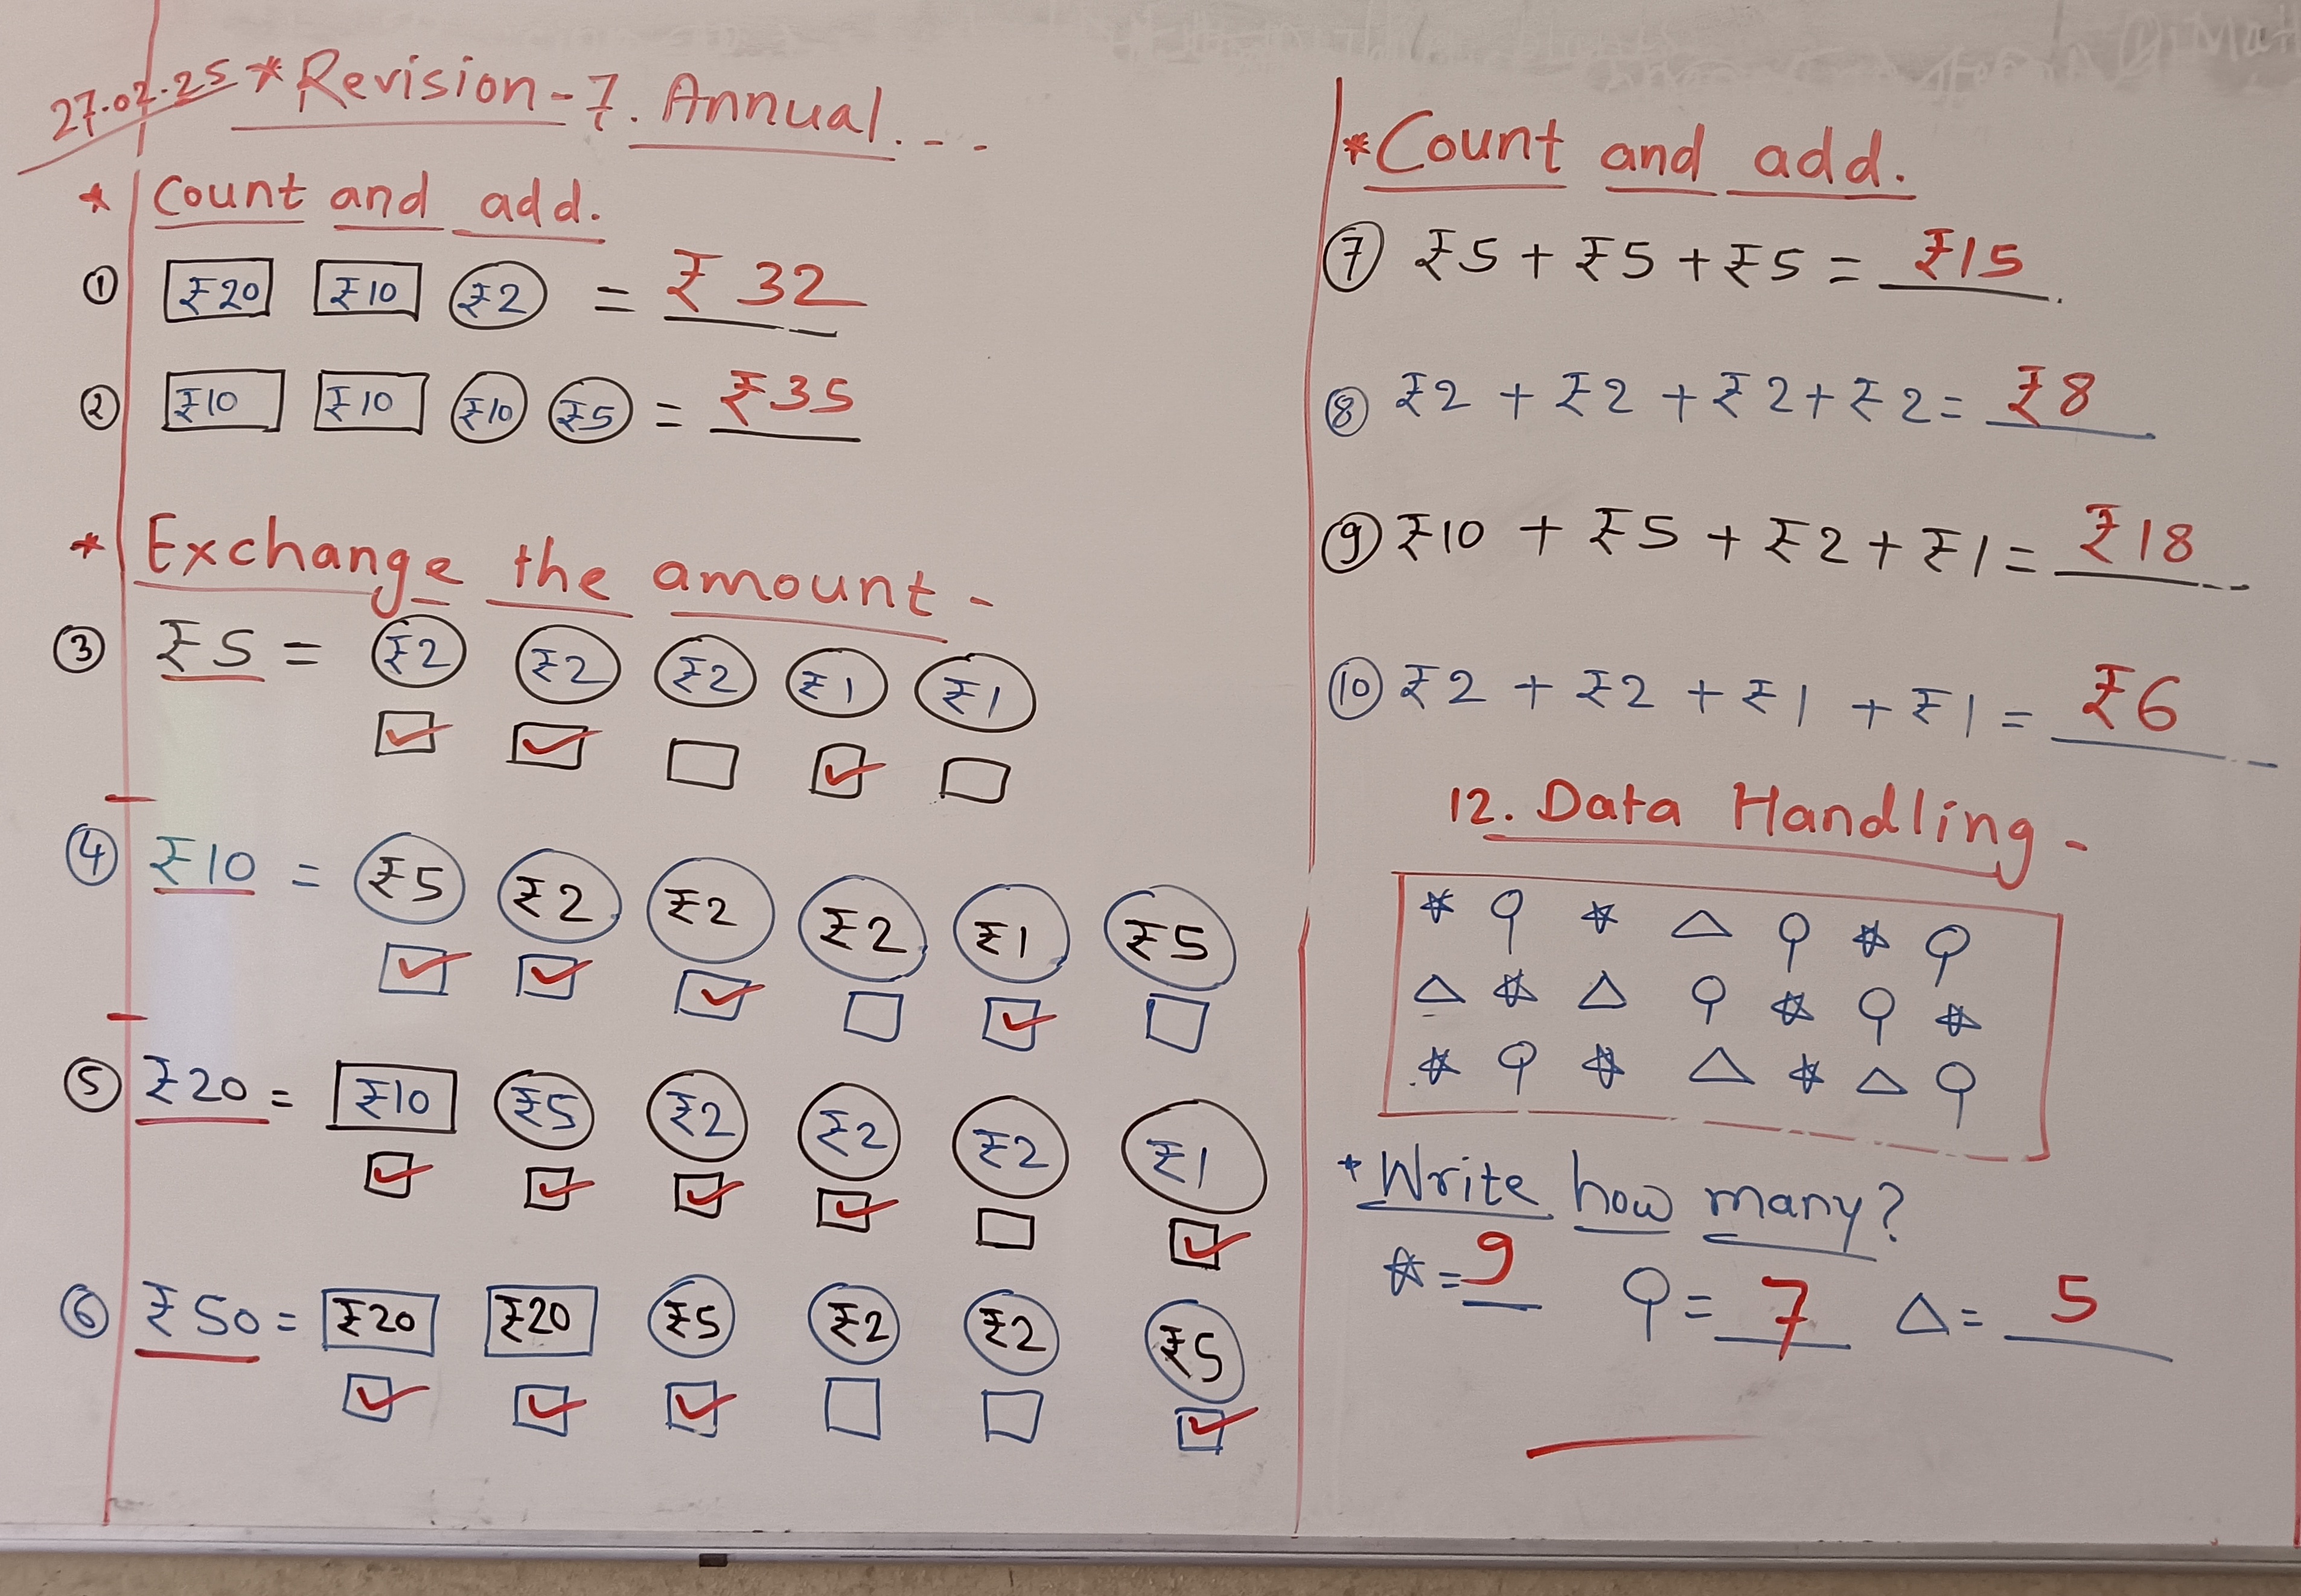 27.02.25 * Revision-7. Annual....
* Count and add.
① ₹20 ₹10 ₹2 = ₹32
② ₹10 ₹10 ₹10 ₹5 = ₹35
* Exchange the amount -
③ ₹5 = ₹2 ₹2 ₹2 ₹1 ₹1
④ ₹10 = ₹5 ₹2 ₹2 ₹2 ₹1 ₹5
⑤ ₹20 = ₹10 ₹5 ₹2 ₹2 ₹2 ₹1
⑥ ₹50 = ₹20 ₹20 ₹5 ₹2 ₹2 ₹5
* Count and add.
⑦ ₹5 + ₹5 + ₹5 = ₹15
⑧ ₹2 + ₹2 + ₹2 + ₹2 = ₹8
⑨ ₹10 + ₹5 + ₹2 + ₹1 = ₹18
⑩ ₹2 + ₹2 + ₹1 + ₹1 = ₹6
12. Data Handling -
* Write how many?
☆ = 9 ⚲ = 7 △ = 5